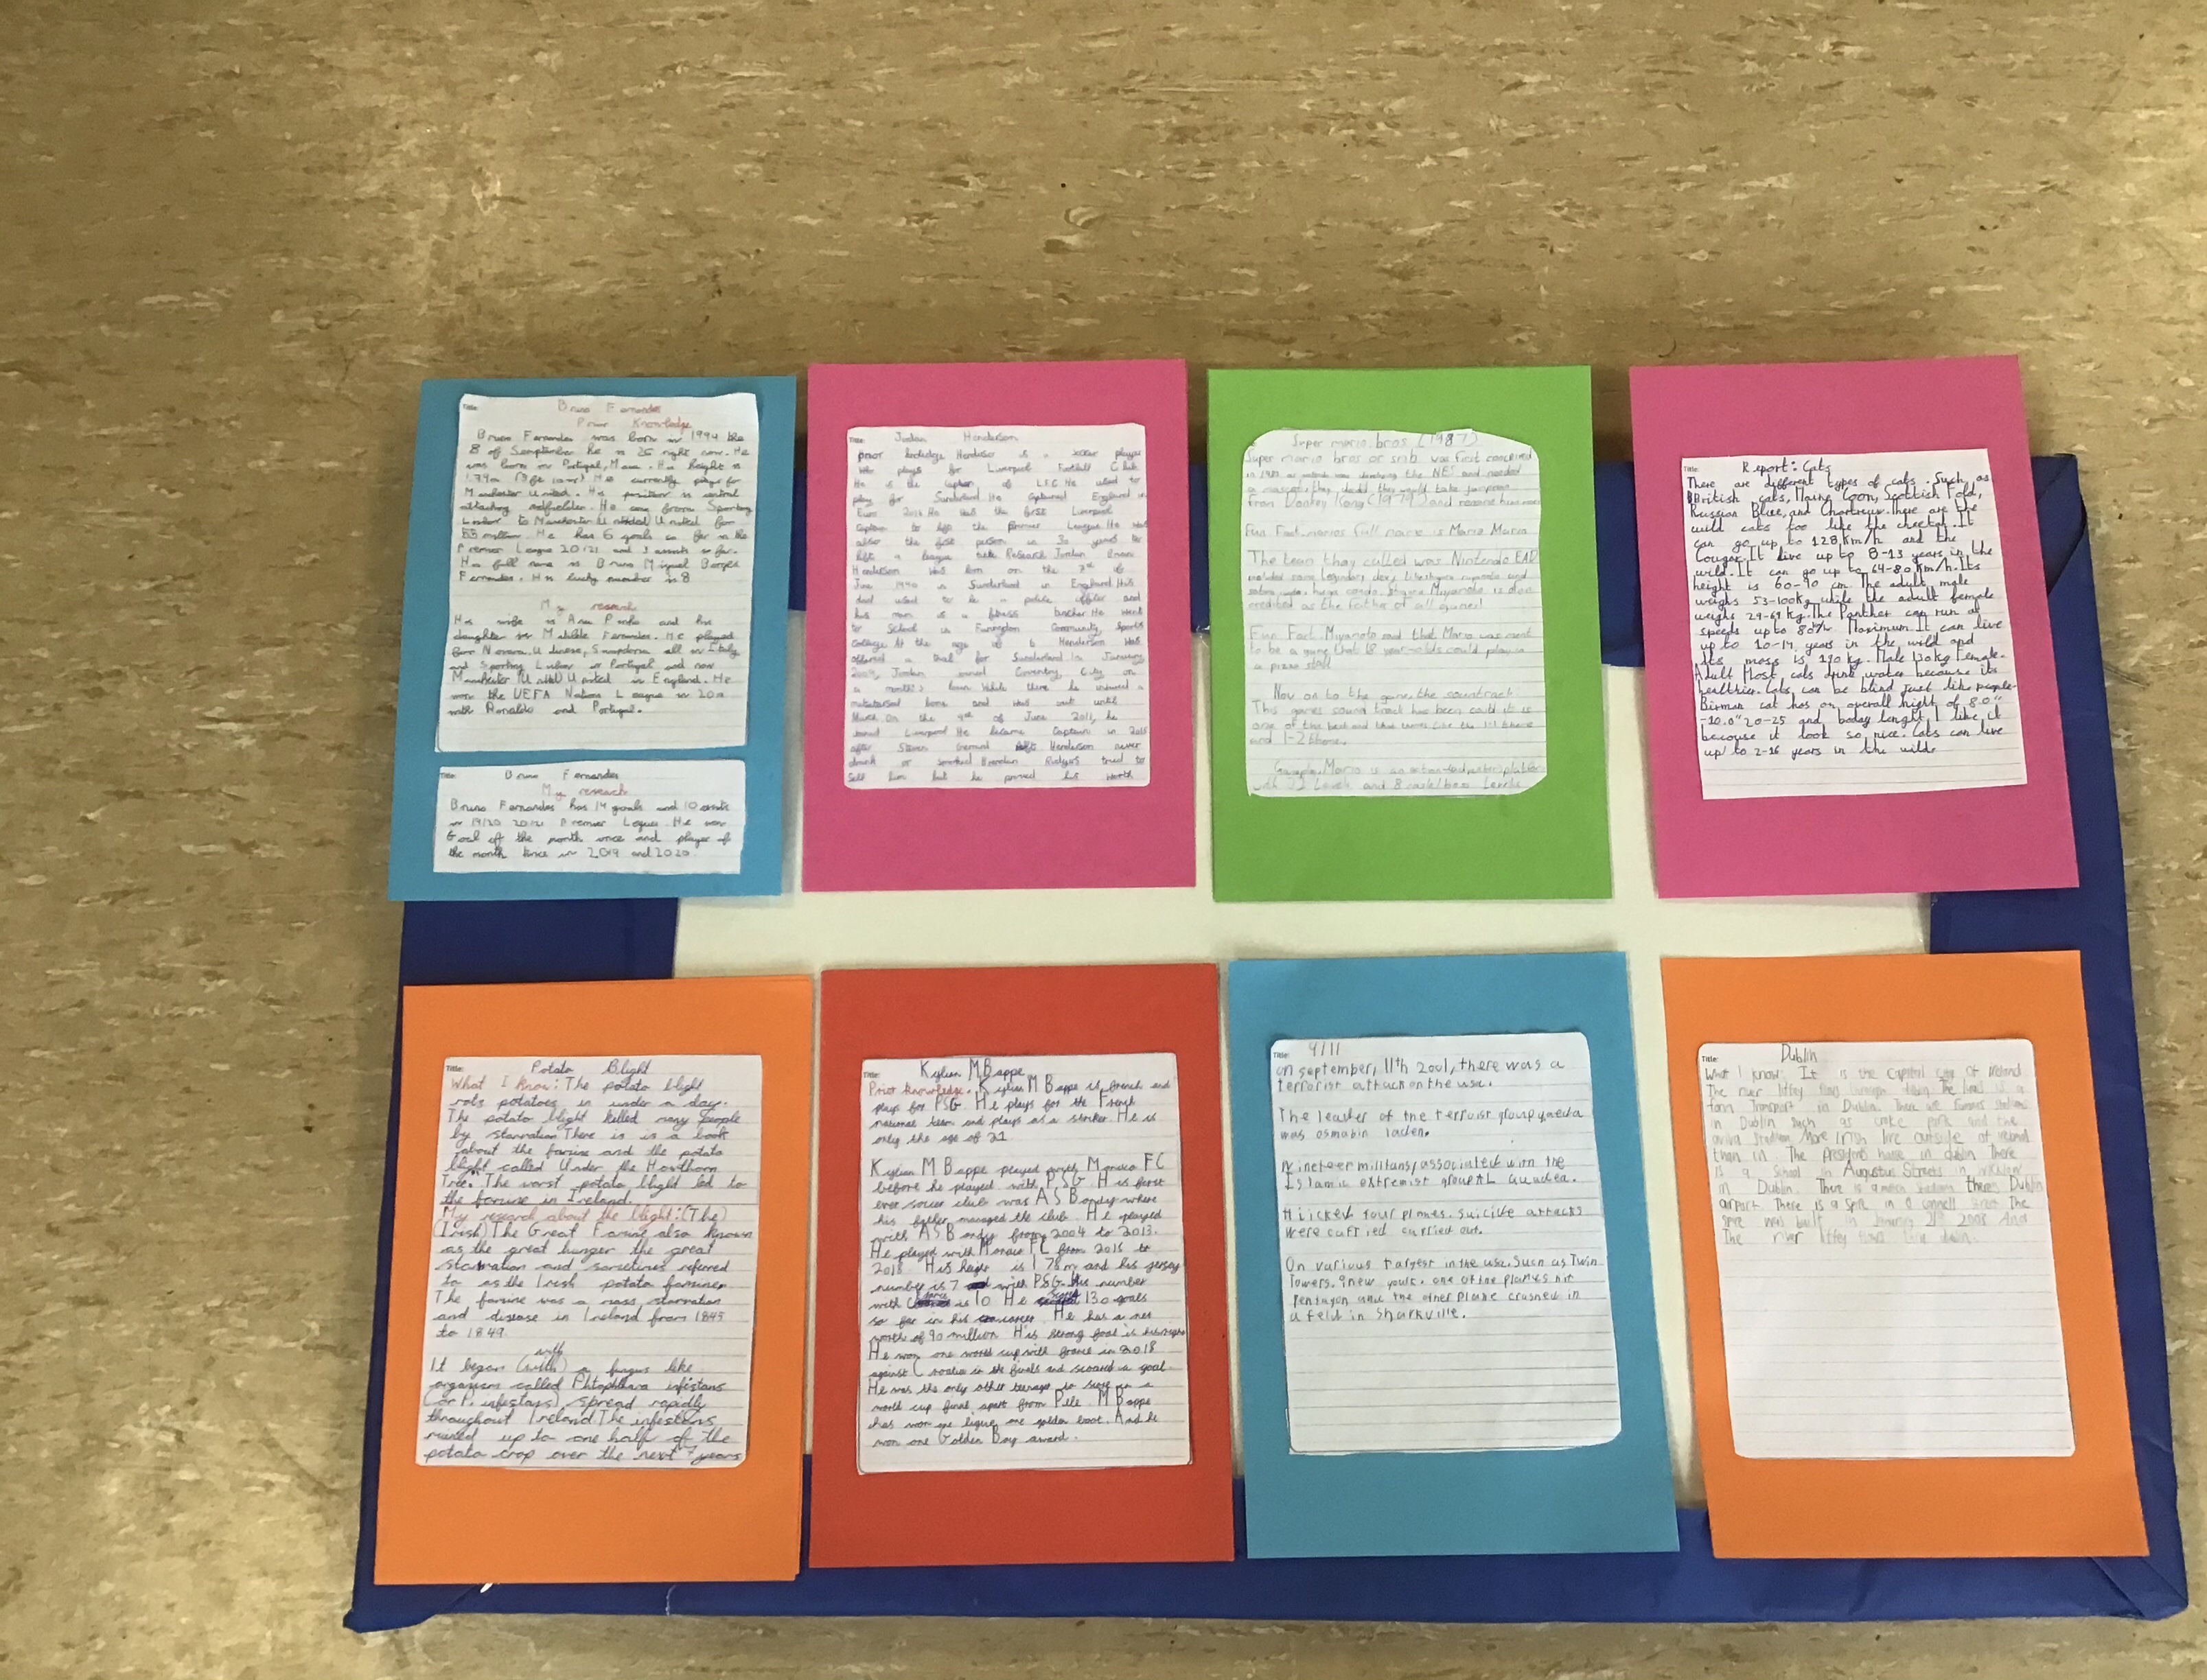 Title: Bruno Fernandes
Prior Knowledge
Bruno Fernandes was born in 1994 the
8 of Semptember he is 26 right now. He
was born in Portugal, Maia. His height is
1.79m He currently plays for
Manchester United. His position is central
attacking midfielder. He came from Sporting
Lisbon to Manchester United for
million. He has 6 goals so far in the
Premier League 20/21 and 3 assists so far.
His full name is Bruno Miguel Borges
Fernandes. His lucky number is 8
My research
His wife is Ana Pinho and his
daughter is Matilde Fernandes. He played
for Novara, Udinese, Sampdoria all in Italy
and Sporting Lisbon in Portugal and now
Manchester United in England. He
won the UEFA Nations League in
with Ronaldo and Portugal.
Title: Bruno Fernandes
My reseach
Bruno Fernandes has 14 goals and 10 assists
in 19/20 20/21 Premier League. He won
Goal off the month once and player of
the month twice in 2019 and 2020
Title: Jordan Henderson
prior is a soccer player
who plays for Liverpool Football Club.
He is the captain of L.F.C He used to
play for Sunderland He Captained England in
Euro 2016 He was the first Liverpool
Captain to lift the premier League He was
also the first person in 30 years to
lift a league title Research Jordan Brian
Henderson was born on the of
June 1990 in Sunderland in England His
dad used to be a police officer and
his mam is a fitness He went
to School in Farringdon Community Sports
College At the age of 6 Henderson was
offered a trial for Sunderland In January
2009, Jordan joined Coventry City on
a month's loan While there he injured a
metatarsal bone and was out until
March On the 9th of June 2011, he
joined Liverpool He became Captain in 2015
after Steven Gerrard left Henderson never
drank or smoked Brendan Rodgers tried to
sell him but he proved his worth
Super mario bros (1987)
Super mario bros or smb was first conceived
in nintendo was developing the NES and needed
a mascot, they they would take jumpman
from Donkey Kong and rename him mario
Fun Fact, marios full name is Mario Mario
The team they called was Nintendo EAD
included some Legendary devs, like and
Miyamoto is also
credited as the father of all games!
Fun Fact, Miyamoto said that Mario was ment
to be a that 8 year-olds could play in
a pizza stall
Now on to the game, the sountrack
This games sound track has been it is
one of the best and like the 1-1 theme
and 1-2 theme.
Gameplay, Mario is an
with 32 Levels and 8 Levels
Title: Report: Cats
There are different types of cats. Such as
British cats, Maine Coon, Scottish Fold,
Russian Blue, and Chartreux. There are the
wild cats too like the cheetah. It
can go up to 128 Km/h and the
Cougar. It live up to 8-13 years in the
wild. It can go up to 64-80 Km/h. Its
height is 60-90 cm. The adult male
weighs 53-100kg while the adult female
weighs 29-64 Kg. The Panther can run at
speeds up to Maximum It can live
up to 10-14 years in the wild and
its mass is 190 kg. Male 130kg Female.
Adult Most cats drink water because its
healthier. Cats can be blind just like people.
Birman cat has on overall hight of 8.0"
-10.0" 20-25 and boday lenght, I like it
because it look so nice. Cats can live
up to 2-16 years in the wilds
Title: Potato Blight
What I know: The potato blight
rots potatoes in under a day.
The potato blight killed many people
by starvation There is is a book
about the famine and the potato
blight called Under the Hawthorn
Tree. The worst potato blight led to
the famine in Ireland.
My research about the blight: (The)
(Irish) The Great Famine also known
as the great hunger the great
starvation and sometimes referred
to as the Irish potato famine
The famine was a mass starvation
and disease in Ireland from 1845
to 1849.
with
It began (with) a fungus like
organism called Phtophthora infestans
(or P. infestans), spread rapidly
throughout Ireland. The infestans
ruined up to one half of the
potato crop over the next 7 years
Title: Kylian M Bappe
Prior knowledge. Kylian M Bappe is french and
plays for PSG. He plays for the French
national team and plays as a striker. He is
only the age of 21
Kylian M Bappe played with Monaco FC
before he played with PSG. H is first
ever soccer club was A S Bondy where
his father managed the club. He played
with A S Bondy from 2004 to 2013.
He played with Monaco FC from 2015 to
2018. His height is 1.78m and his jersey
number is 7 with PSG. His number
with france is 10 He scored 130 goals
so far in his career. He has a net
worth of 90 million. His strong foot is his right
He won one world cup with france in 2018
against Croatia in the finals and scoared a goal.
He was the only other teenage to score in a
world cup final apart from Pele. M Bappe
has won one ligue one golden boot. And he
won one Golden Boy award.
Title: 9/11
on september, 11th 2001, there was a
terrorist attack on the usa.
The leader of the terrorist group
was osmabin laden.
Nineteen militans/associated with the
Islamic extremist group
Hiicked four planes. suicide attacks
were carried carried out.
On various targest in the usa. Such as Twin
Towers, 9new youlc. one of the planes hit
Pentagon and the other plane crashed in
a feld in Sharkville.
Title: Dublin
What I know: It is the Capital city of Ireland
The river liffey flows through dublin. The luas is a
form Transport in Dublin. There are famous stadiums
in Dublin such as croke park and the
aviva stadium. More Irish live outside of Ireland
than in. The presidents house in dublin There
is a School in Augustus Streets in
in Dublin. There is a theres Dublin
airport. There is a Spire in O connell Street The
Spire was built in January 21st 2003. And
The river liffey flows